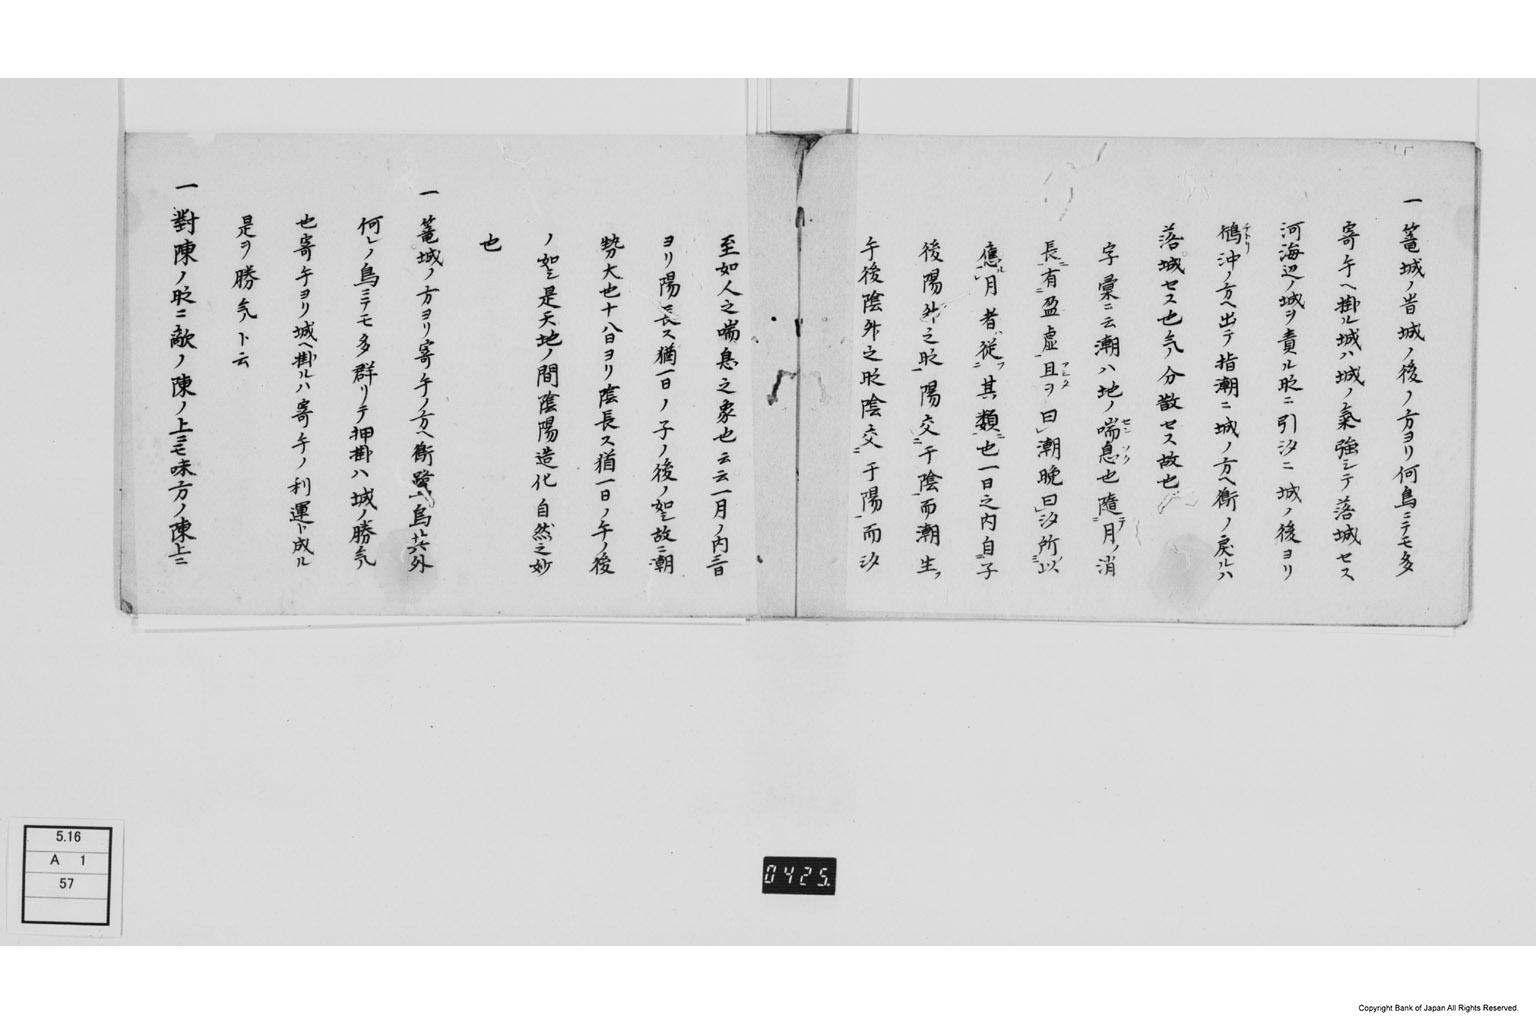 一 篭城ノ昔城ノ後ノ方ヨリ何鳥ニテモ多
寄手ヘ掛ル城ハ城ノ氣強シテ落城セス
河海辺ノ城ヲ責ル時ニ引汐ニ城ノ後ヨリ
鵆沖ノ方ヘ出テ指潮ニ城ノ方ヘ衝ノ戻ルハ
チトリ
落城セス也気ノ分散セス故也
字彙ニ云潮ハ地ノ喘息也隨月ノ消
セン ソク テ
長有盈虚旦ヲ曰潮晩曰汐所以
アシタ
應月者従其類也一日之内自子
後陽升之時陽交于陰而潮生
午後陰升之時陰交于陽而汐
至如人之喘息之象也云云一月ノ内三日
ヨリ陽長ス猶一日ノ子ノ後ノ如シ故ニ潮
勢大也十八日ヨリ陰長ス猶一日ノ午ノ後
ノ如シ是天地ノ間陰陽造化自然之妙
也
一 篭城ノ方ヨリ寄手ノ方ヘ衝鷺烏共外
何レノ鳥ニテモ多群リテ押掛ハ城ノ勝気
也寄手ヨリ城ヘ掛ルハ寄手ノ利運ト成ル
是ヲ勝気ト云
一 對陳ノ時ニ敵ノ陳ノ上ニモ味方ノ陳上ニ
5.16
A 1
57
0425.
Copyright Bank of Japan All Rights Reserved.